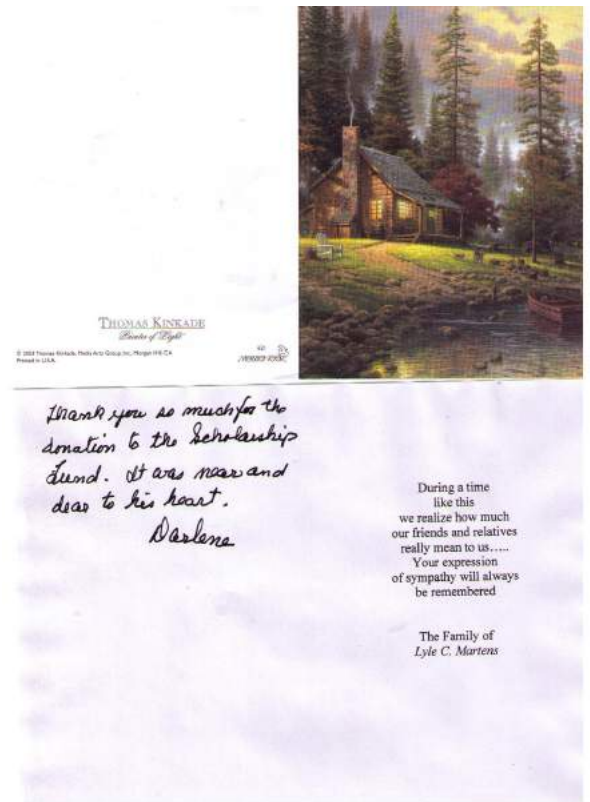 THOMAS KINKADE
Painter of Light
© 2003 Thomas Kinkade, Media Arts Group, Inc., Morgan Hill, CA
Printed in U.S.A.
Thank you so much for the
donation to the Scholarship
Fund. It was near and
dear to his heart.
Darlene
During a time
like this
we realize how much
our friends and relatives
really mean to us.....
Your expression
of sympathy will always
be remembered
The Family of
Lyle C. Martens